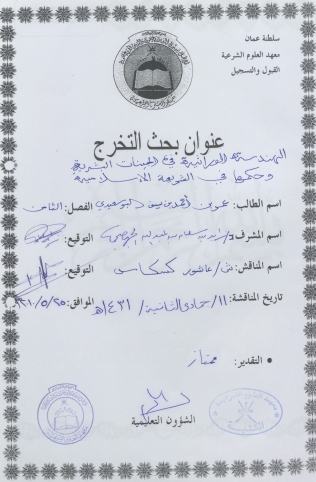 سلطنة عمان
معهد العلوم الشرعية
القبول والتسجيل
عنوان بحث التخرج
الهندسة الوراثية في الجينات البشرية
وحكمها في الشريعة الاسلامية
اسم الطالب: بن البوسعيدي الفصل: الثامن
اسم المشرف: د/ التوقيع:
اسم المناقش: ش/ عاشور كسكاس التوقيع:
تاريخ المناقشة: ١١/ جمادى الثانية/ ١٤٣١هـ الموافق: ٢٥/٥/٢٠١٠
• التقدير: ممتاز
الشؤون التعليمية